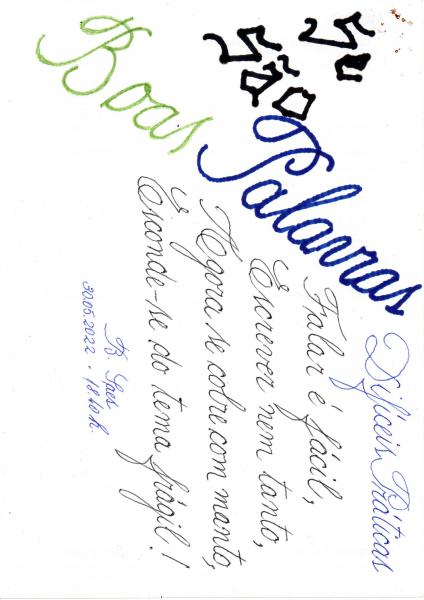 São
Boas
Palavras
Difíceis Práticas
Falar é fácil,
Escrever nem tanto,
Agora se cobre com manto,
Esconde-se do tema frágil!
Spes
30.05.2022 - 18:40h.